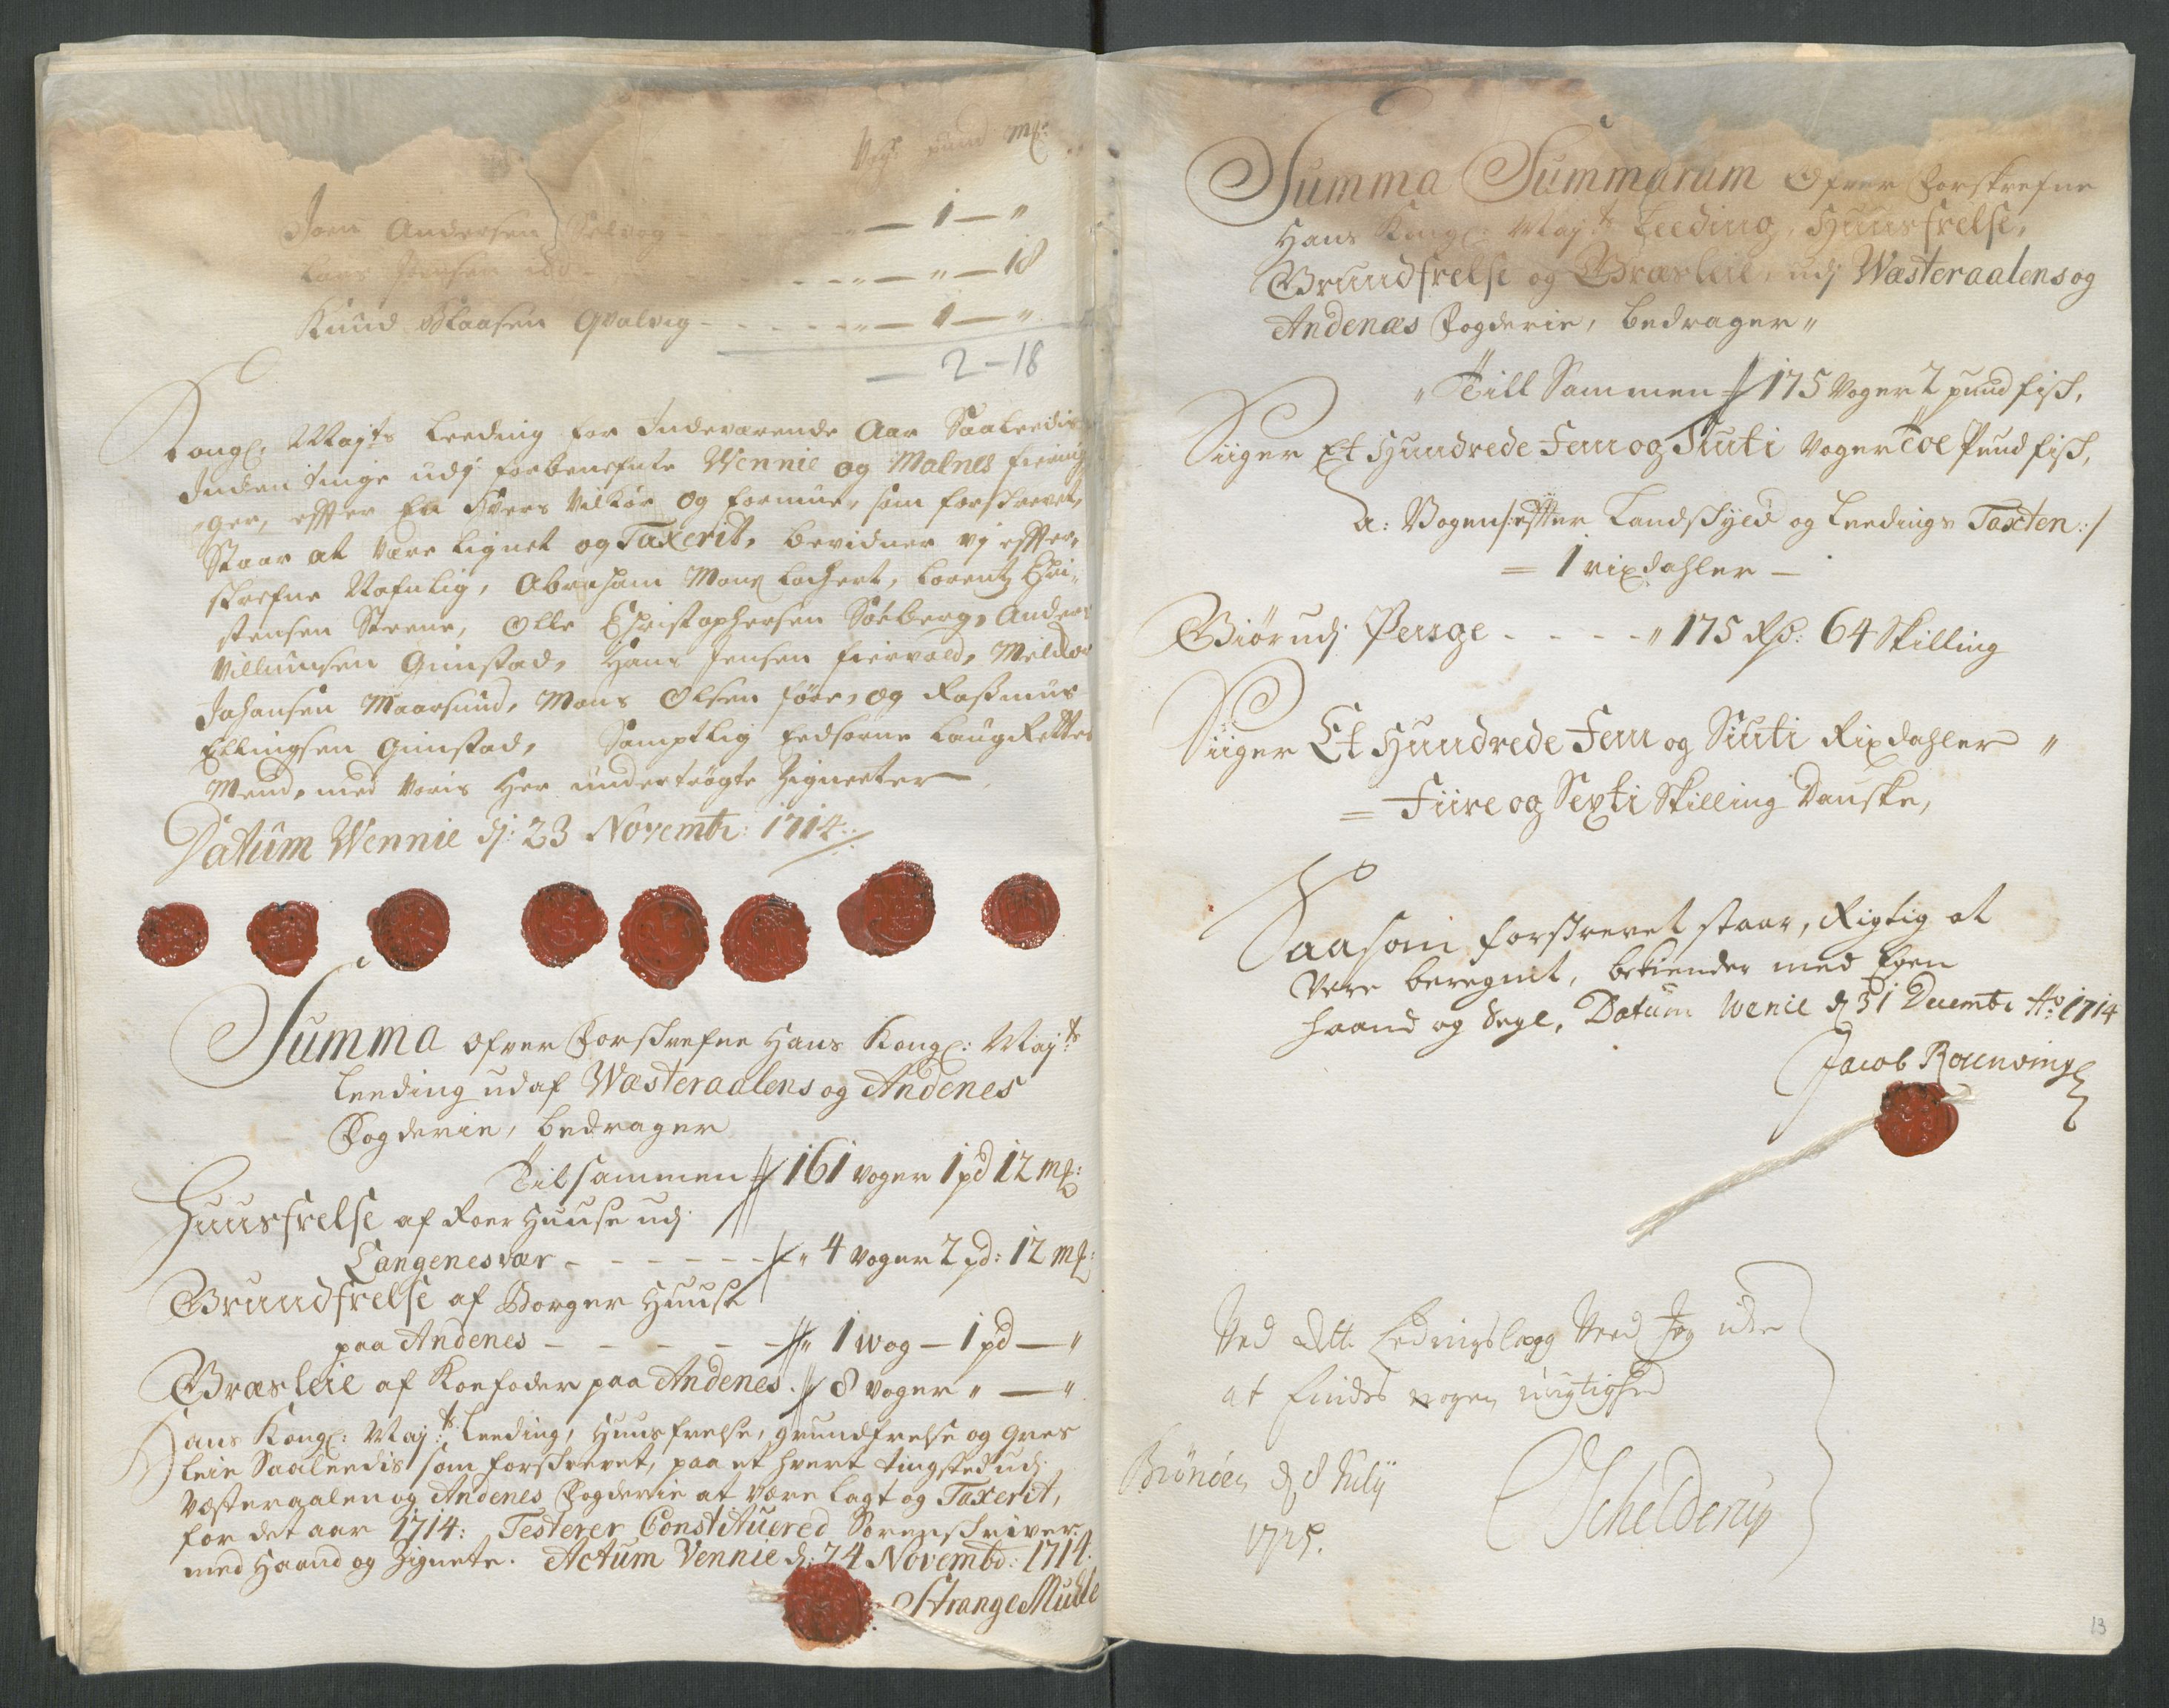 Vog: pund mk:
Joen Andersen Selvog - - - - - „ — 1 — „
Lars Joensen ibd - - - - - „ — „ — 18
Knud Claasen Qvalvig - - - - - „ — 1 — „
— 2 — 18
Kongl. Majts Leeding for Indeværende Aar Saaleedis
Inden Tinge udj forbenefnte Wennie og Malnes fiering
ger, effter En Hvers Vilkor og formue, som forskrevet,
Staar at være lignet og Taxerit, bevidner vj effter„
skrefne Nafnlig, Abraham Mons Lochert, Lorentz Chri„
stensen Steene, Olle Christophersen Søeberg, Anders
Villumsen Gimstad, Hans Jensen fiervold, Meldor
Johansen Maarsund, Mons Olsen føre, og Rassmus
Ellingsen Gimstad, Samptlig Eedsorne Laug Rettes
Mend, med voris her undertrøgte Zigneeter
Datum Wennie dj: 23 Novembr: 1714
Summa ofver Forskrefne Hans Kongl: Maj:ts
Leeding udaf Wæsteraalens og Andenes
Fogderie, bedrager
Tilsammen 161 Voger 1 pd 12 mk:
Huusfrelse af Roer Huuse udj
Langenesvær - - - - - „ 4 Voger 2 pd: 12 mk:
Grundfrelse af Borger Huuse
paa Andenes - - - - - „ 1 wog — 1 pd — „
Græsleie af Koefoder paa Andenes. 8 Voger „ — „
Hans Kongl: Maj:ts Leeding, Huusfrelse, grundfrelse og Gres
leie Saaleedis som forskrevet, paa et hvert tingsted udj
Væsteraalen og Andenes Fogderie at være lagt og Taxerit,
for det aar 1714: Testerer Constituered Sorenskriver
med Haand og Zignete. Actum Vennie dj: 24 Novembr: 1714.
Strange Muhle
Summa Summarum Ofver Forskrefne
Hans Kongl: Maj:ts Leeding, Huusfrelse,
Grundfrelse og Græsleie, udj Wæsteraalens og
Andenæs Fogderie, bedrager „
„ Till Sammen 175 Voger 2 pund fisk,
Siiger Et Hundrede Fem og Siuti Voger Toe Pund fisk,
a: Vogen /: effter Landskyld og Leedings Taxten :/
= 1 rixdahler —
Giør udj Penge - - - - „ 175 Rd: 64 Skilling
Siiger Et Hundrede Fem og Siuti Rixdahler „
= Fiire og Sexti Skilling Danske,
Saasom forskrevet staar, Rigtig at
Vere beregnet, bekiender med Egen
haand og Segl, Datum Wenie d 31 Decembr Ao: 1714
Jacob Rosenvinge
Ved dette Ledingslægg Veed Jeg icke
at findes nogen urigtighed
Brønøen d 8 July
1725.
Schelderup
13